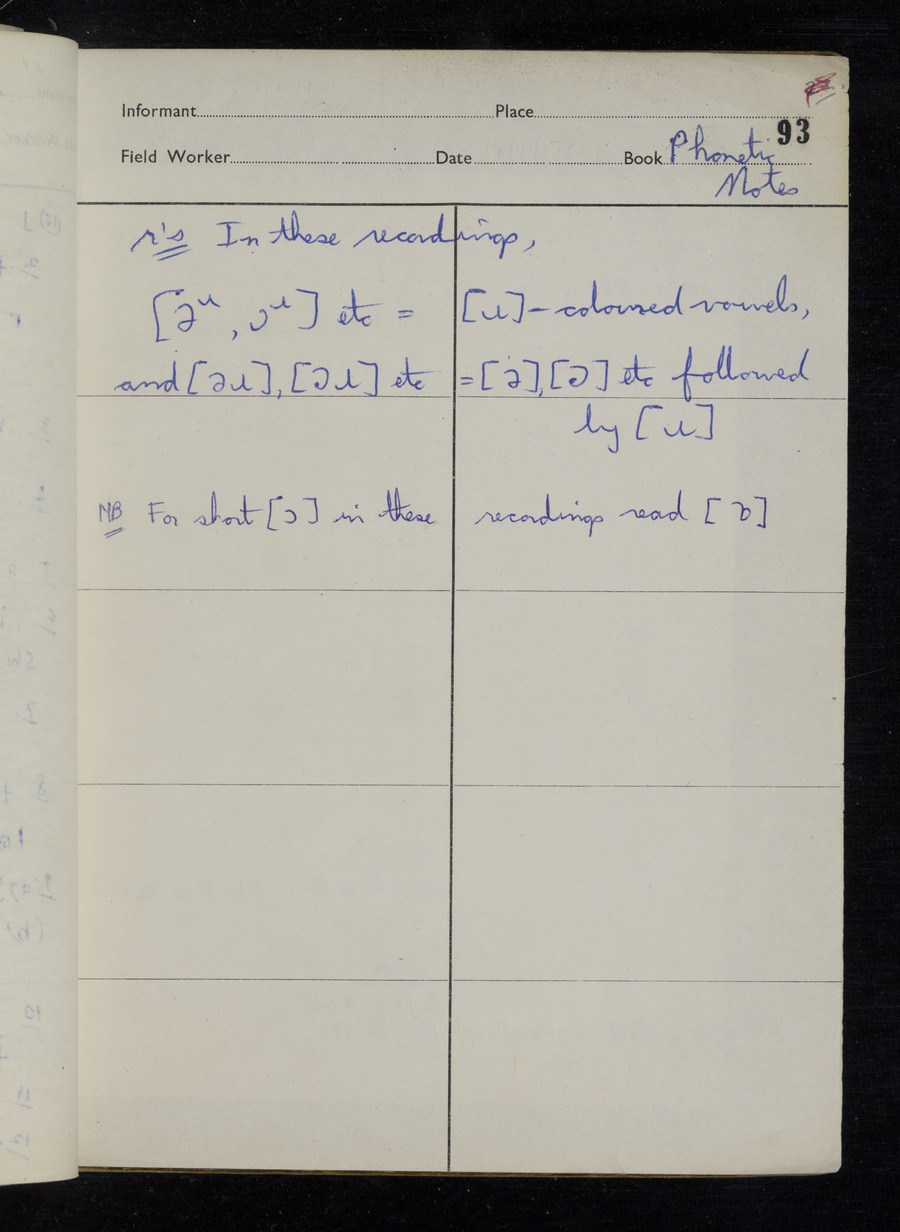 Informant Place
93
Field Worker Date Book Phonetic
Notes
r's In these recordings,
[əɹ, ɔɹ] etc = [ɹ]-coloured vowels,
and [əɹ], [ɔɹ] etc = [ə], [ɔ] etc followed
by [ɹ]
NB For short [ɔ] in these recordings read [ɒ]